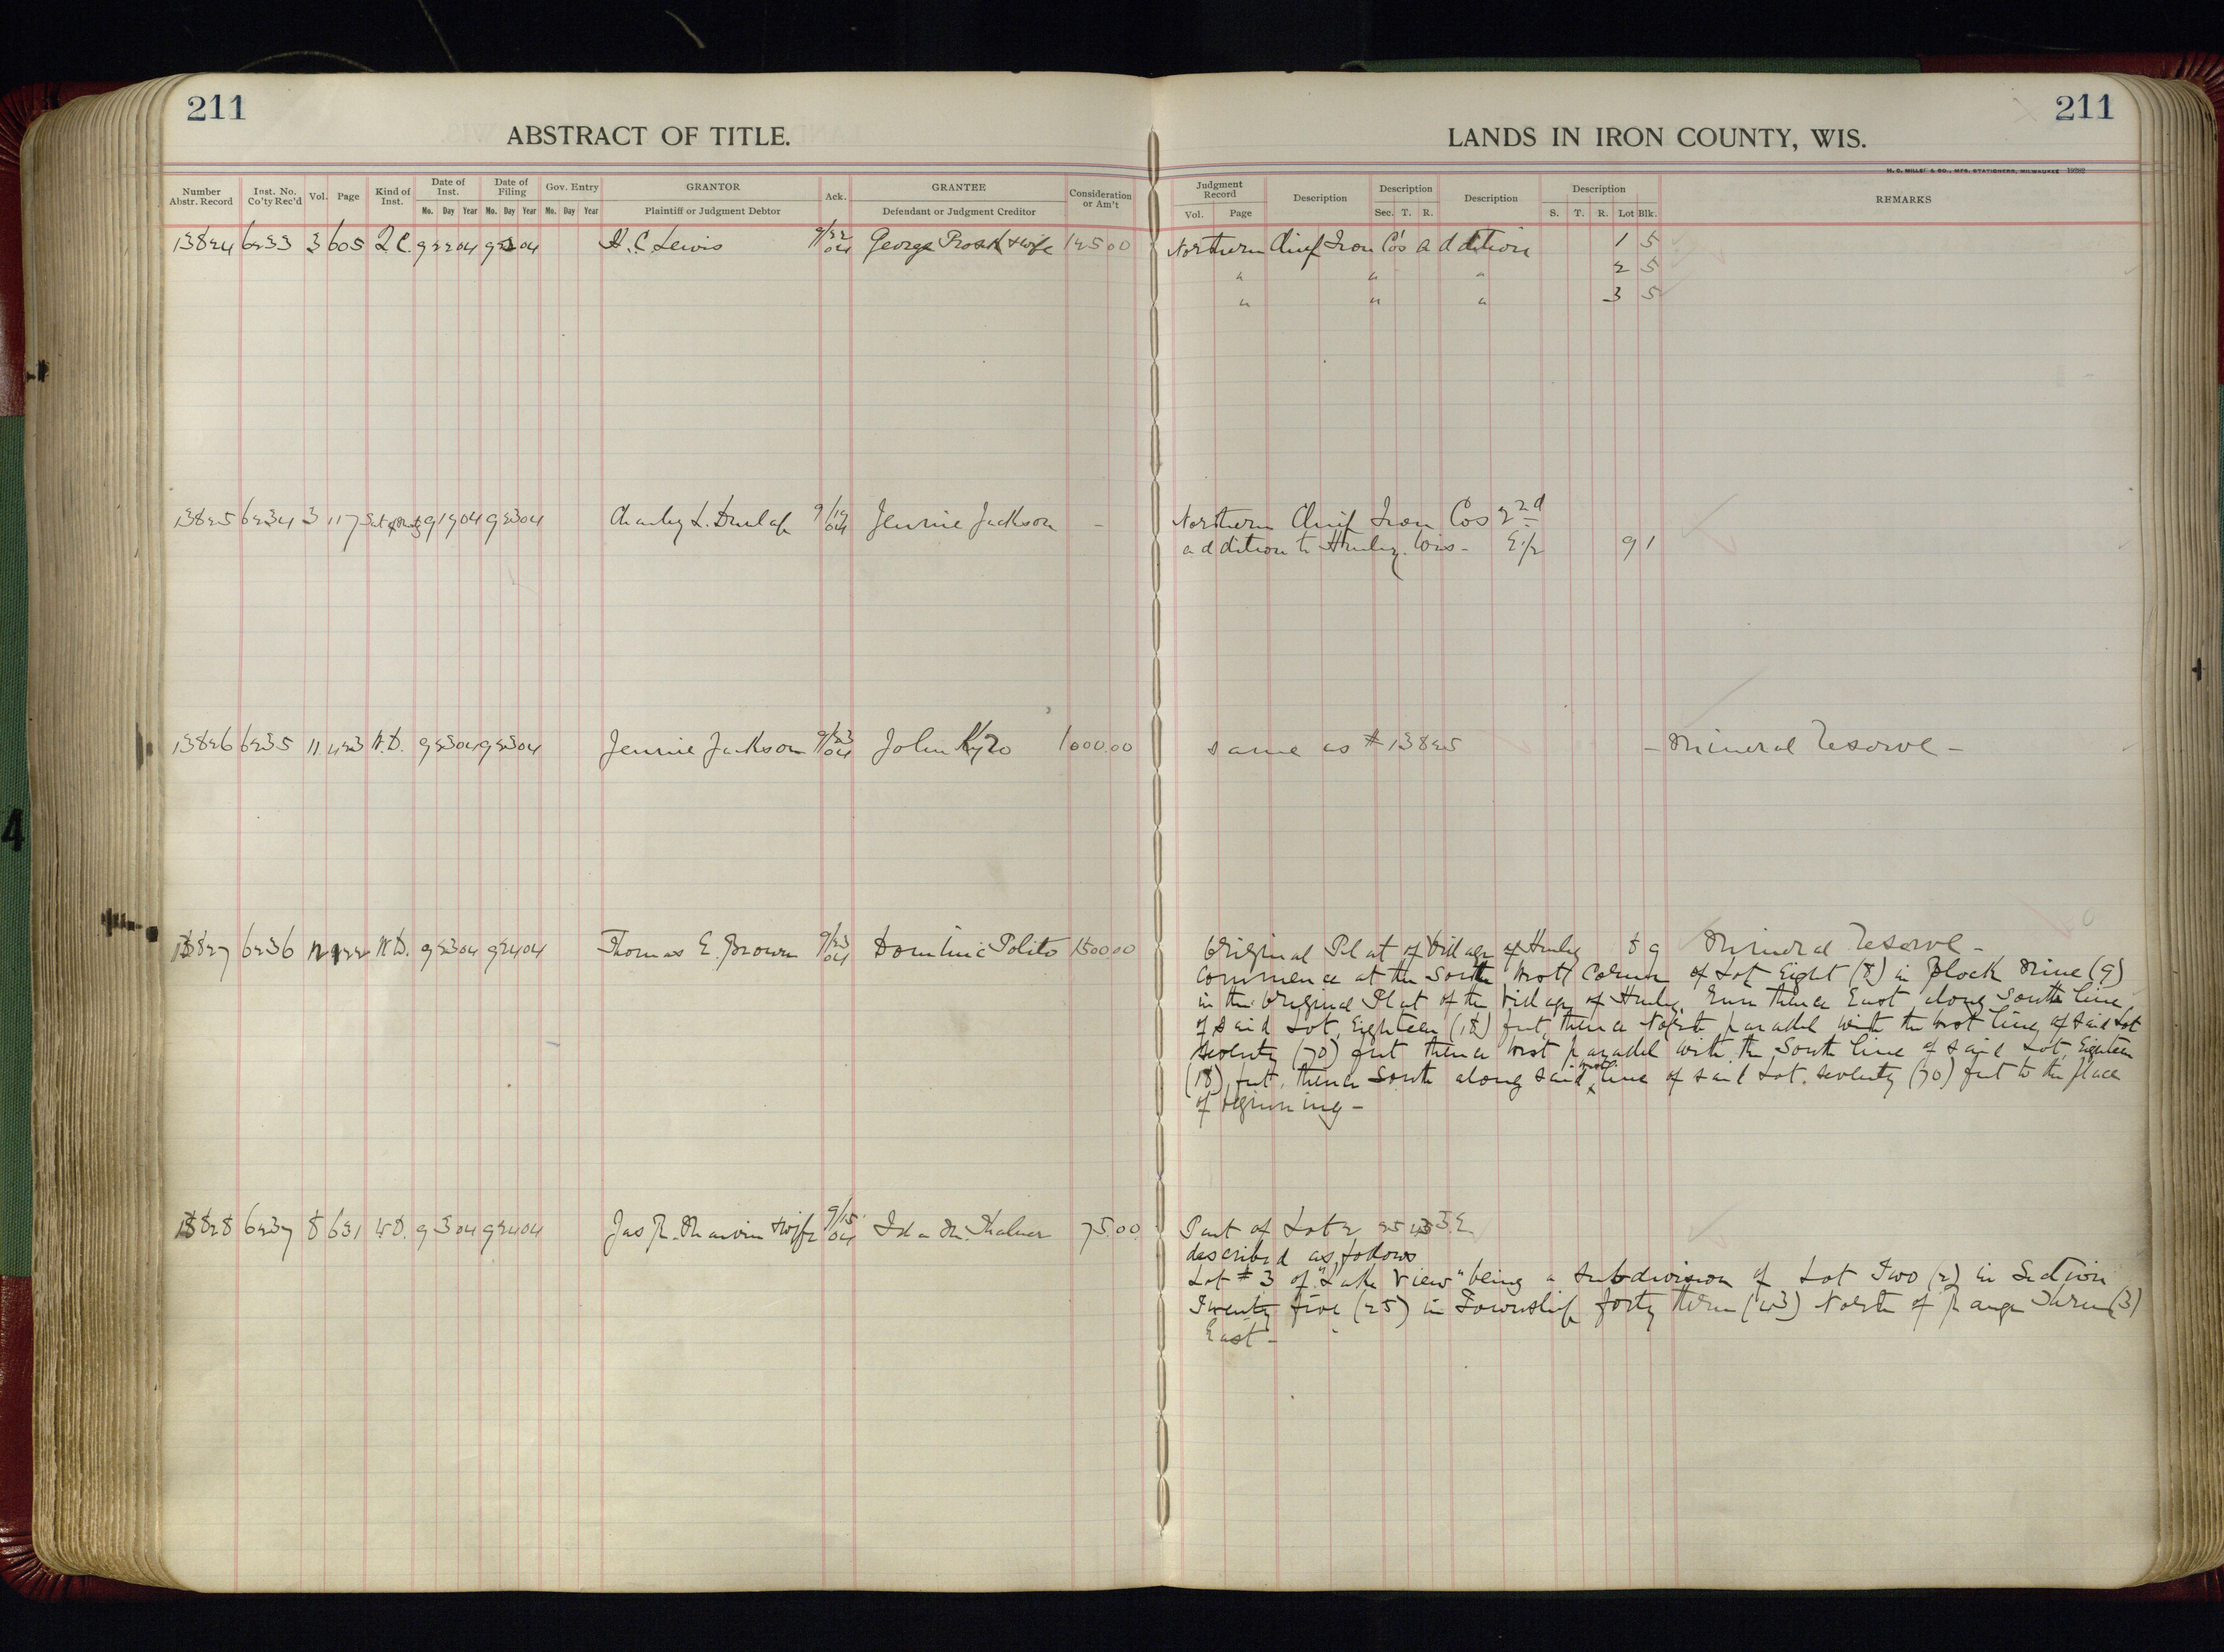 211
ABSTRACT OF TITLE.
LANDS IN IRON COUNTY, WIS.
211
Number Abstr. Record
Inst. No. Co'ty Rec'd
Vol.
Page
Kind of Inst.
Date of Inst.
Mo. Day Year
Date of Filing
Mo. Day Year
Gov. Entry
Mo. Day Year
GRANTOR
Plaintiff or Judgment Debtor
Ack.
GRANTEE
Defendant or Judgment Creditor
Consideration or Am't
Judgment Record
Vol. Page
Description
Description
Sec. T. R.
Description
Description
S. T. R. Lot Blk.
REMARKS
13824 6233 3 605 Q.C. 9 22 04 9 23 04 H. C. Lewis 9/22 04 George & wife 125 00 Northern Chief Iron Co's addition 1 5
" " " 2 5
" " " 3 5
13825 6234 3 117 9 19 04 9 23 04 Charley L. Dunlap 9/19 04 Jennie Jackson - Northern Chief Iron Cos 2nd
addition to Hurley. Wis - E 1/2 9 1
13826 6235 11 423 W.D. 9 23 04 9 23 04 Jennie Jackson 9/23 04 John Kyro 1000.00 same as # 13825 - Mineral Reserve -
13827 6236 12 122 W.D. 9 23 04 9 24 04 Thomas E. Brown 9/23 04 Dominic Polito 1500 00 Original Plat of Village of Hurley 8 9 Mineral Reserve -
Commence at the South West Corner of Lot Eight (8) in Block Nine (9)
in the Original Plat of the Village of Hurley, Run thence East along South line
of said Lot, Eighteen (18) feet, thence North parallel with the West line of said Lot
seventy (70) feet thence West parallel with the South line of said Lot, Eighteen
(18) feet, thence South along said West line of said Lot, seventy (70) feet to the place
of beginning -
13828 6237 8 631 W.D. 9 3 04 9 24 04 Jas R. Marvin & wife 9/15 04 Ida M. 75.00 Part of Lot 2 25 43 3 E
described as follows
Lot # 3 of "Lake View" being a subdivision of Lot Two (2) in Section
Twenty five (25) in Township forty three (43) North of Range Three (3)
East -
4